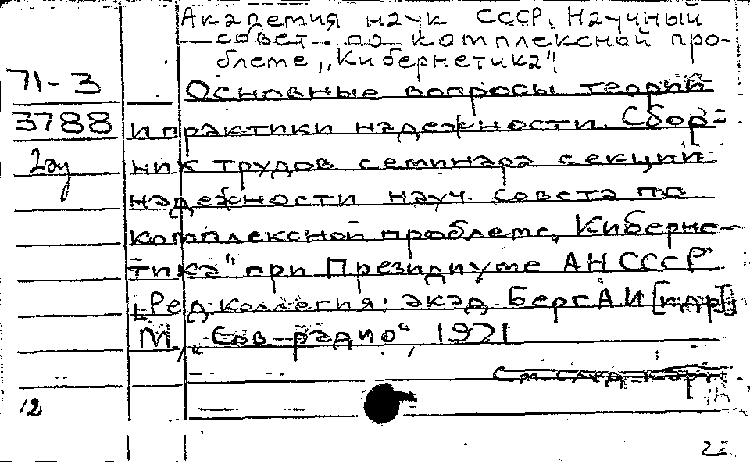 Академия наук СССР. Научный
совет по комплексной про-
блеме „Кибернетика"
71-3
Основные вопросы теории
3788
и практики надежности. Сбор-
ник трудов семинара секции
надежности науч. совета по
комплексной проблеме „Киберне-
тика" при Президиуме АН СССР
[Ред. коллегия: акад. Берг А.И. [и др.]]
М., „Сов. радио", 1971
См. след. карт.
12